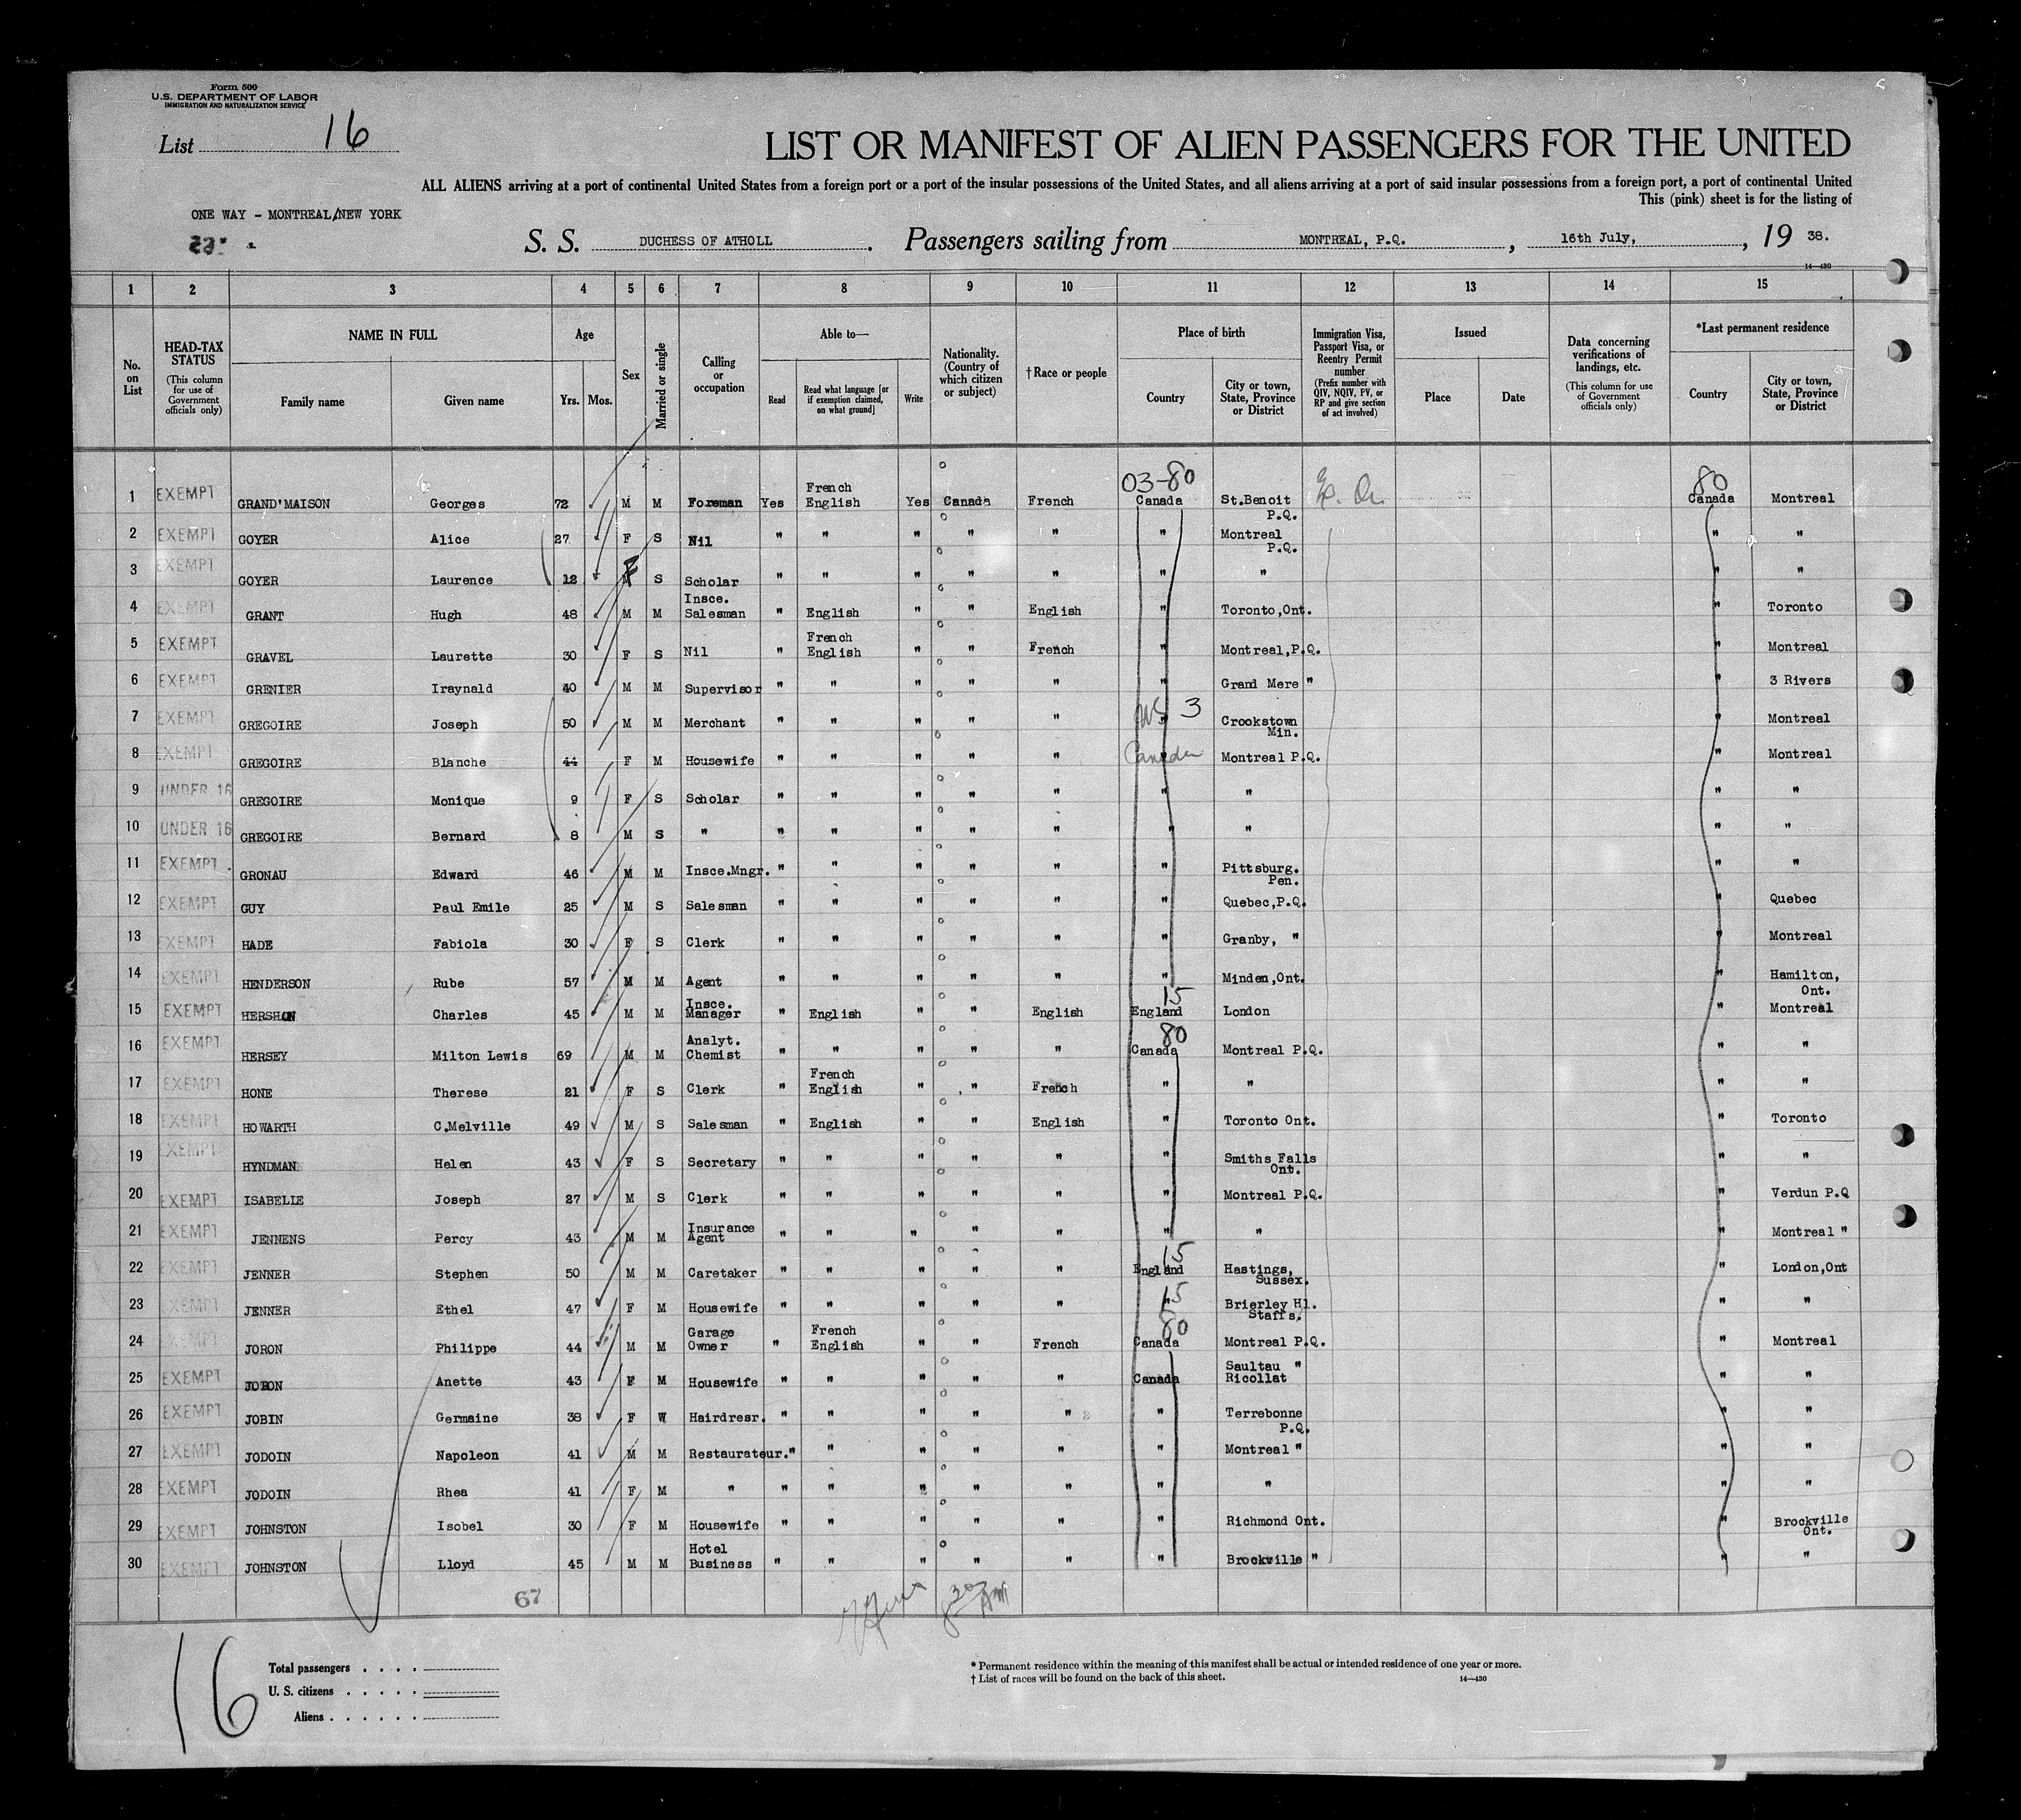 Form 500
U.S. DEPARTMENT OF LABOR
IMMIGRATION AND NATURALIZATION SERVICE
List 16
LIST OR MANIFEST OF ALIEN PASSENGERS FOR THE UNITED
ALL ALIENS arriving at a port of continental United States from a foreign port or a port of the insular possessions of the United States, and all aliens arriving at a port of said insular possessions from a foreign port, a port of continental United
This (pink) sheet is for the listing of
ONE WAY - MONTREAL/NEW YORK
S. S. DUCHESS OF ATHOLL. Passengers sailing from MONTREAL, P.Q., 16th July, , 19 38.
14—430
1 2 3 4 5 6 7 8 9 10 11 12 13 14 15
No. on List
HEAD-TAX STATUS (This column for use of Government officials only)
NAME IN FULL Family name Given name
Age Yrs. Mos.
Sex
Married or single
Calling or occupation
Able to— Read Read what language [or if exemption claimed, on what ground] Write
Nationality. (Country of which citizen or subject)
† Race or people
Place of birth Country City or town, State, Province or District
Immigration Visa, Passport Visa, or Reentry Permit number (Prefix number with QIV, NQIV, PV, or RP and give section of act involved)
Issued Place Date
Data concerning verifications of landings, etc. (This column for use of Government officials only)
*Last permanent residence Country City or town, State, Province or District
03-80 80
1 EXEMPT GRAND'MAISON Georges 72 M M Foreman Yes French English Yes Canada French Canada St.Benoit P.Q. Canada Montreal
2 EXEMPT GOYER Alice 27 F S Nil " " " " " " Montreal P.Q. " "
3 EXEMPT GOYER Laurence 12 F S Scholar " " " " " " " " "
4 EXEMPT GRANT Hugh 48 M M Insce. Salesman " English " " English " Toronto,Ont. " Toronto
5 EXEMPT GRAVEL Laurette 30 F S Nil " French English " " French " Montreal,P.Q. " Montreal
6 EXEMPT GRENIER Iraynald 40 M M Supervisor " " " " " " Grand Mere " " 3 Rivers
7 EXEMPT GREGOIRE Joseph 50 M M Merchant " " " " " " US 3 Crookstown Min. " Montreal
8 EXEMPT GREGOIRE Blanche 44 F M Housewife " " " " " " Canada Montreal P.Q. " Montreal
9 UNDER 16 GREGOIRE Monique 9 F S Scholar " " " " " " " " "
10 UNDER 16 GREGOIRE Bernard 8 M S " " " " " " " " " "
11 EXEMPT GRONAU Edward 46 M M Insce.Mngr. " " " " " " Pittsburg. Pen. " "
12 EXEMPT GUY Paul Emile 25 M S Salesman " " " " " " Quebec,P.Q. " Quebec
13 EXEMPT HADE Fabiola 30 F S Clerk " " " " " " Granby, " " Montreal
14 EXEMPT HENDERSON Rube 57 M M Agent " " " " " " Minden,Ont. " Hamilton, Ont.
15 EXEMPT HERSHON Charles 45 M M Insce. Manager " English " " English 15 England London " Montreal
16 EXEMPT HERSEY Milton Lewis 69 M M Analyt. Chemist " " " " " 80 Canada Montreal P.Q. " "
17 EXEMPT HONE Therese 21 F S Clerk " French English " " French " " " "
18 EXEMPT HOWARTH C.Melville 49 M S Salesman " English " " English " Toronto Ont. " Toronto
19 EXEMPT HYNDMAN Helen 43 F S Secretary " " " " " " Smiths Falls Ont. " "
20 EXEMPT ISABELLE Joseph 27 M S Clerk " " " " " " Montreal P.Q. " Verdun P.Q
21 EXEMPT JENNENS Percy 43 M M Insurance Agent " " " " " " " " Montreal "
22 EXEMPT JENNER Stephen 50 M M Caretaker " " " " " 15 England Hastings, Sussex. " London,Ont
23 EXEMPT JENNER Ethel 47 F M Housewife " " " " " 15 " Brierley Hl. Staffs. " "
24 EXEMPT JORON Philippe 44 M M Garage Owner " French English " " French 80 Canada Montreal P.Q. " Montreal
25 EXEMPT JORON Anette 43 F M Housewife " " " " " Canada Saultau " Ricollat " "
26 EXEMPT JOBIN Germaine 38 F W Hairdresr. " " " " " " Terrebonne P.Q. " "
27 EXEMPT JODOIN Napoleon 41 M M Restaurateur. " " " " " " Montreal " " "
28 EXEMPT JODOIN Rhea 41 F M " " " " " " " " " "
29 EXEMPT JOHNSTON Isobel 30 F M Housewife " " " " " " Richmond Ont. " Brockville Ont.
30 EXEMPT JOHNSTON Lloyd 45 M M Hotel Business " " " " " " Brockville " " "
67
16
Total passengers
U. S. citizens
Aliens
* Permanent residence within the meaning of this manifest shall be actual or intended residence of one year or more.
† List of races will be found on the back of this sheet.
14—430